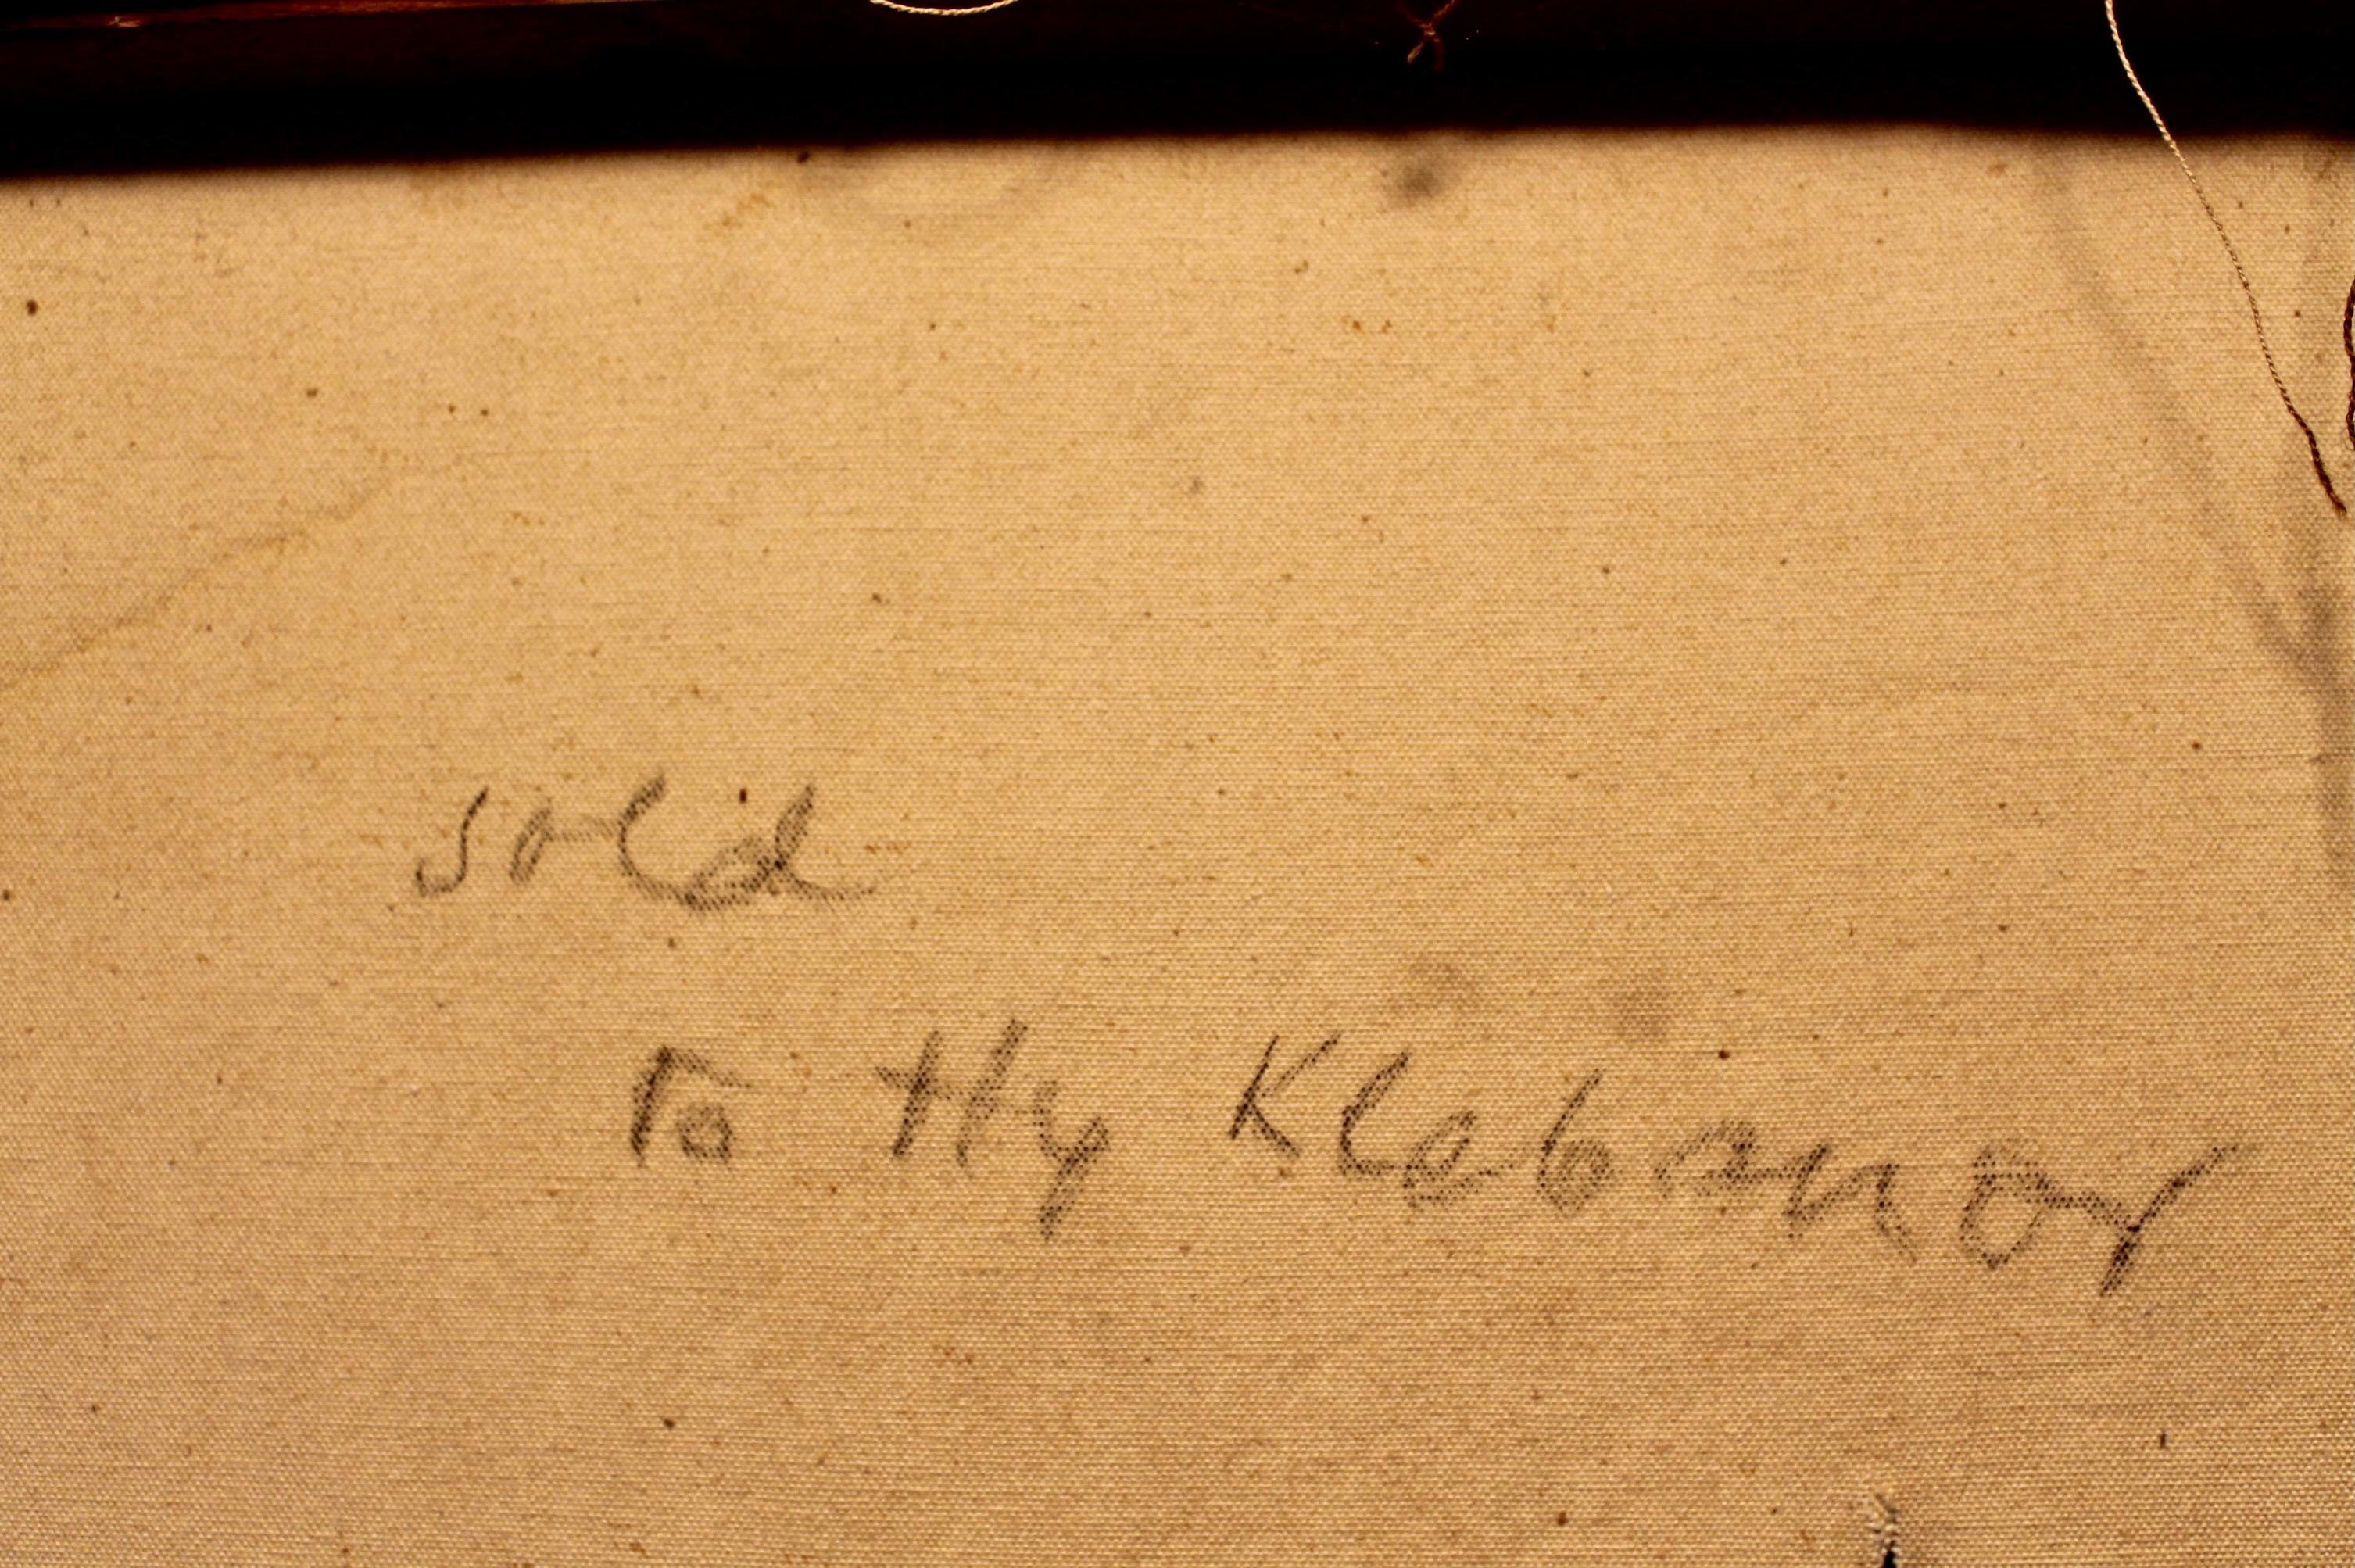 sold
To Hy Klebanor